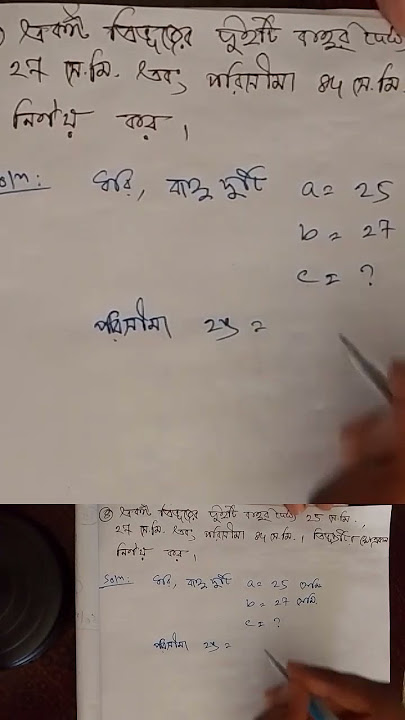 একটি ত্রিভুজের দুইটি বাহুর দৈর্ঘ্য
27 সে.মি. এবং পরিসীমা 84 সে.মি.
নির্ণয় কর।
Solm:
ধরি, বাহু দুটি a = 25
b = 27
c = ?
পরিসীমা 2s =
④ একটি ত্রিভুজের দুইটি বাহুর দৈর্ঘ্য 25 সে.মি.,
27 সে.মি. এবং পরিসীমা 84 সে.মি.। ত্রিভুজটির ক্ষেত্রফল
নির্ণয় কর।
Solm: ধরি, বাহু দুটি a = 25 সেমি
b = 27 সেমি.
c = ?
পরিসীমা 2s =